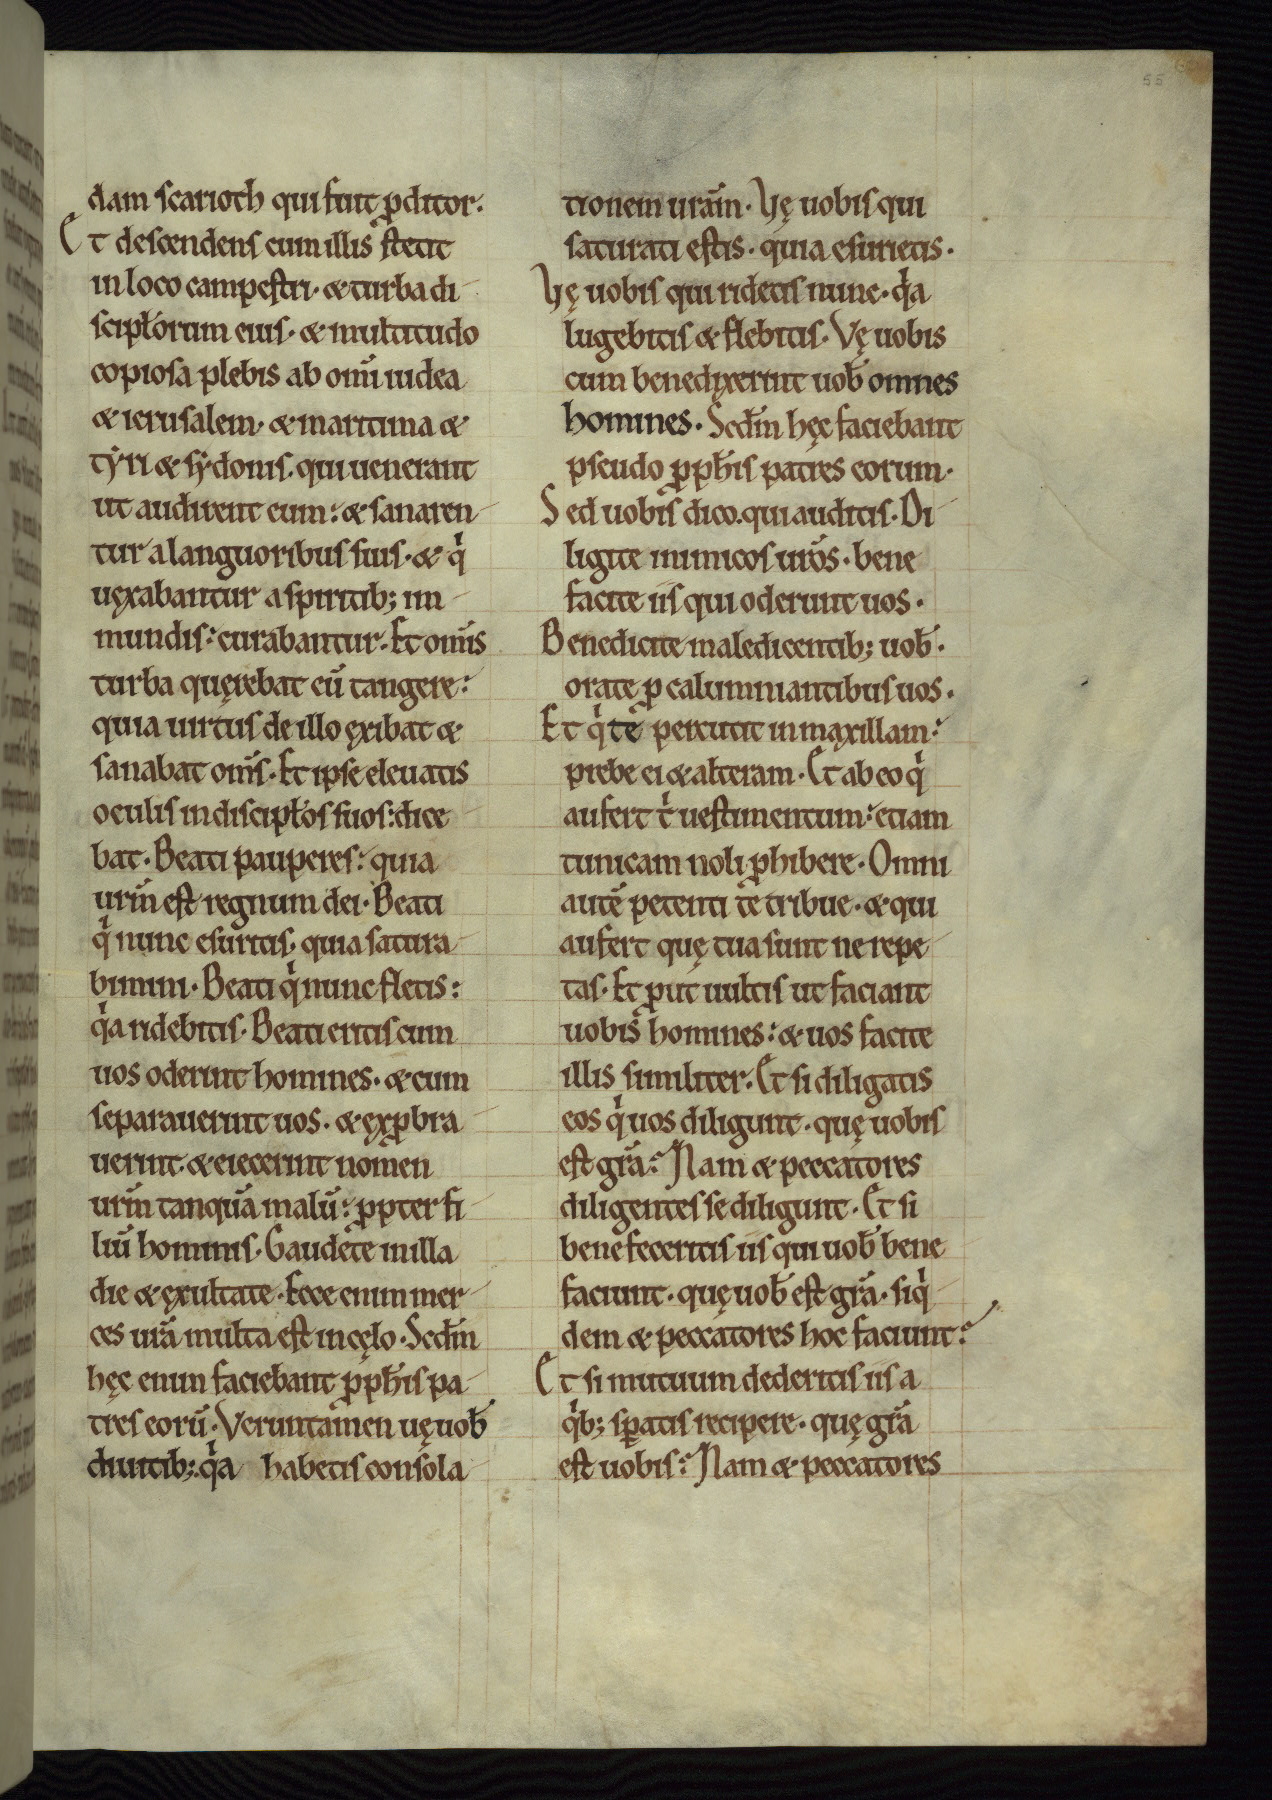 55
dam scarioth qui fuit ꝓditor.
Et descendens cum illis stetit
in loco campestri· & turba di
scipłorum eius· & multitudo
copiosa plebis ab omī iudea
& ierusalem· & maritima &
tẏri & sẏdonis. qui uenerant
ut audirent eum: & sanaren
tur a languoribus suis· & qͥ
uęxabantur a spiritib; im
mundis: curabantur. Et om̄is
turba quęrebat eū tangere:
quia uirtus de illo ęxibat &
sanabat om̄s. Et ipse eleuatis
oculis in discipłos suos: dice
bat. Beati pauperes: quia
urm̄ est regnum dei. Beati
qͥ nunc esuritis· quia satura
bimini. Beati qͥ nunc fletis:
qͥa ridebitis. Beati eritis cum
uos oderint homines· & cum
separauerint uos· & ęxꝓbra
uerint· & eiecerint nomen
urm̄ tanquā malū: ꝓpter fi
liū hominis. Gaudete in illa
die & ęxultate. Ecce enim mer
ces urā multa est in cęlo. Scd̄m
hęc enim faciebant ꝓph̄is pa
tres eorū. Veruntamen uę uob̄
diuitib; qͥa habetis consola
tionem urām. Vę uobis qui
saturati estis· quia esurietis.
Vę uobis qui ridetis nunc· qͥa
lugebitis & flebitis. Vę uobis
cum benedixerint uob̄ omnes
homines. Scd̄m hęc faciebant
pseudo ꝓph̄is patres eorum.
Sed uobis dico. qui auditis. Di
ligite inimicos urōs· bene
facite iis qui oderunt uos.
Benedicite maledicentib; uob̄.
orate ꝓ calumniantibus uos.
Et qͥ te percutit in maxillam:
prebe ei & alteram. Et ab eo qͥ
aufert tͥ uestimentum: etiam
tunicam noli ꝓhibere. Omni
autē petenti te tribue· & qui
aufert quę tua sunt ne repe
tas. Et ꝓut uultis ut faciant
uobis homines: & uos facite
illis similiter. Et si diligatis
eos qͥ uos diligunt· quę uobis
est grā? Nam & peccatores
diligentes se diligunt. Et si
benefeceritis iis qui uob̄ bene
faciunt· quę uob̄ est grā· siqͥ
dem & peccatores hoc faciunt?
Et si mutuum dederitis iis a
qͥb; sꝑatis recipere· quę grā
est uobis? Nam & peccatores